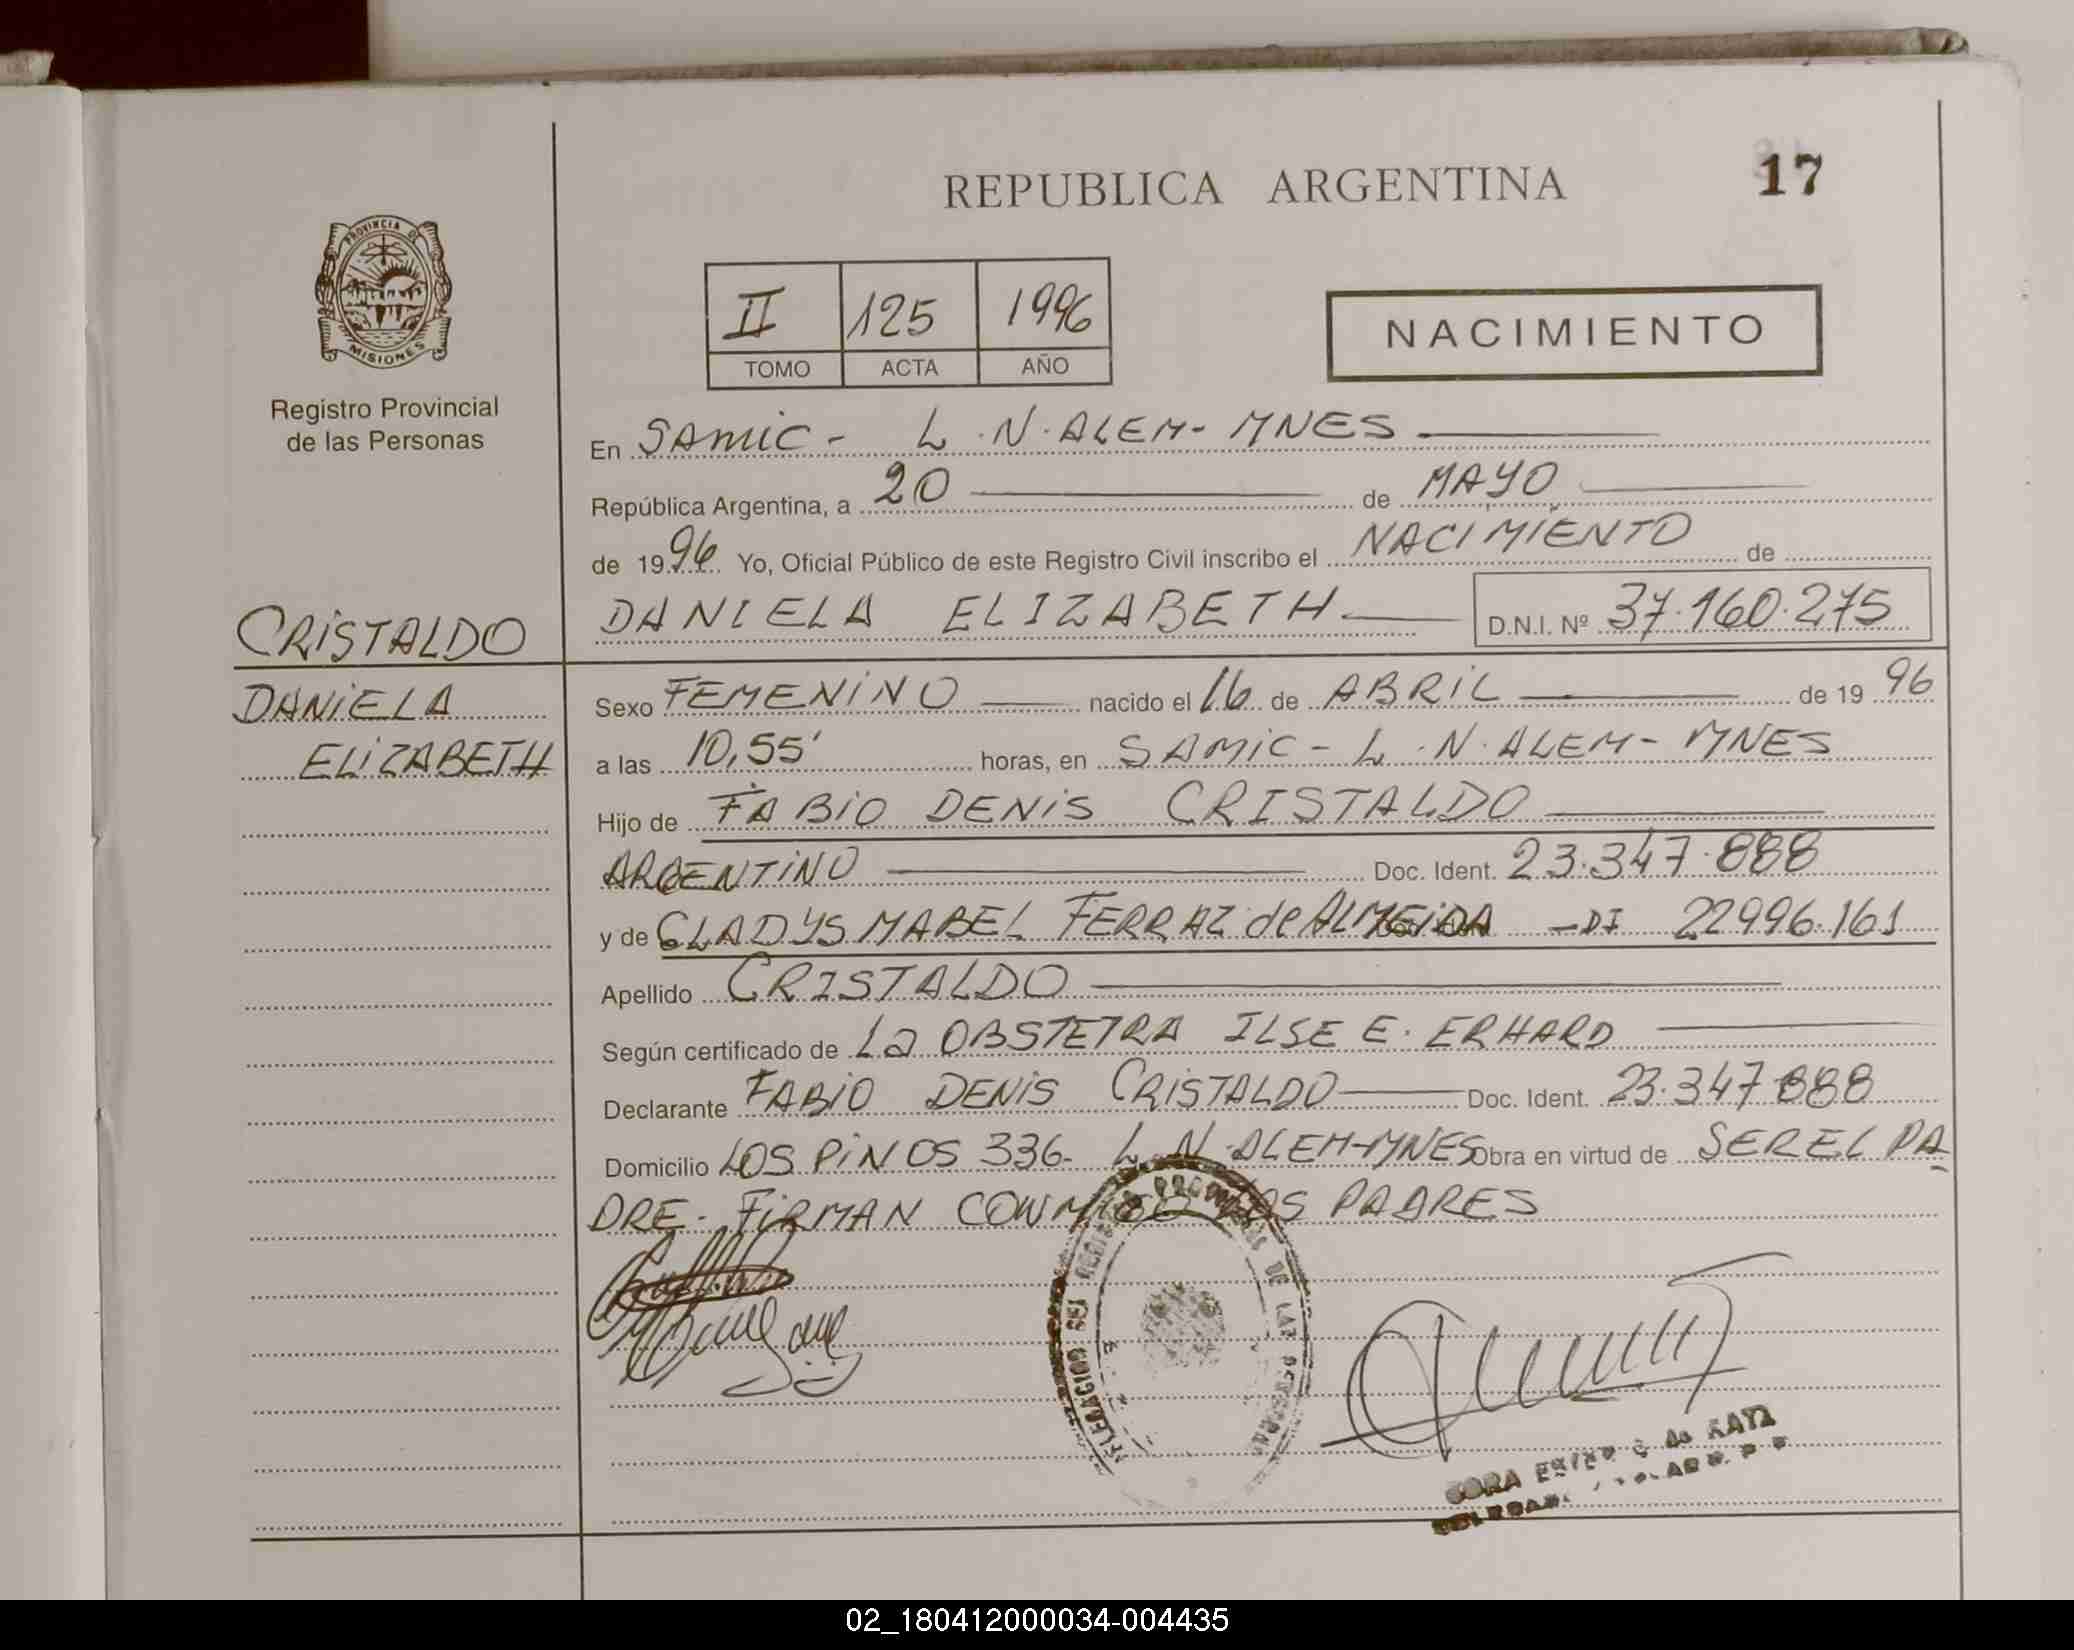 REPUBLICA ARGENTINA
17
PROVINCIA DE
MISIONES
Registro Provincial
de las Personas
II 125 1996
TOMO ACTA AÑO
NACIMIENTO
En SAMIC - L.N. ALEM - MNES
República Argentina, a 20 de MAYO
de 1996 Yo, Oficial Público de este Registro Civil inscribo el NACIMIENTO de
CRISTALDO
DANIELA
ELIZABETH
DANIELA ELIZABETH D.N.I. Nº 37.160.275
Sexo FEMENINO nacido el 16 de ABRIL de 1996
a las 10,55' horas, en SAMIC - L.N. ALEM - MNES
Hijo de FABIO DENIS CRISTALDO
ARGENTINO Doc. Ident. 23.347.888
y de GLADYS MABEL FERRAZ de ALMEIDA - DI 22996.161
Apellido CRISTALDO
Según certificado de La OBSTETRA ILSE E. ERHARD
Declarante FABIO DENIS CRISTALDO Doc. Ident. 23.347.888
Domicilio LOS PINOS 336 - L.N. ALEM - MNES Obra en virtud de SER EL PA
DRE - FIRMAN CONMIGO LOS PADRES
DE LAS PERSONAS
02_180412000034-004435